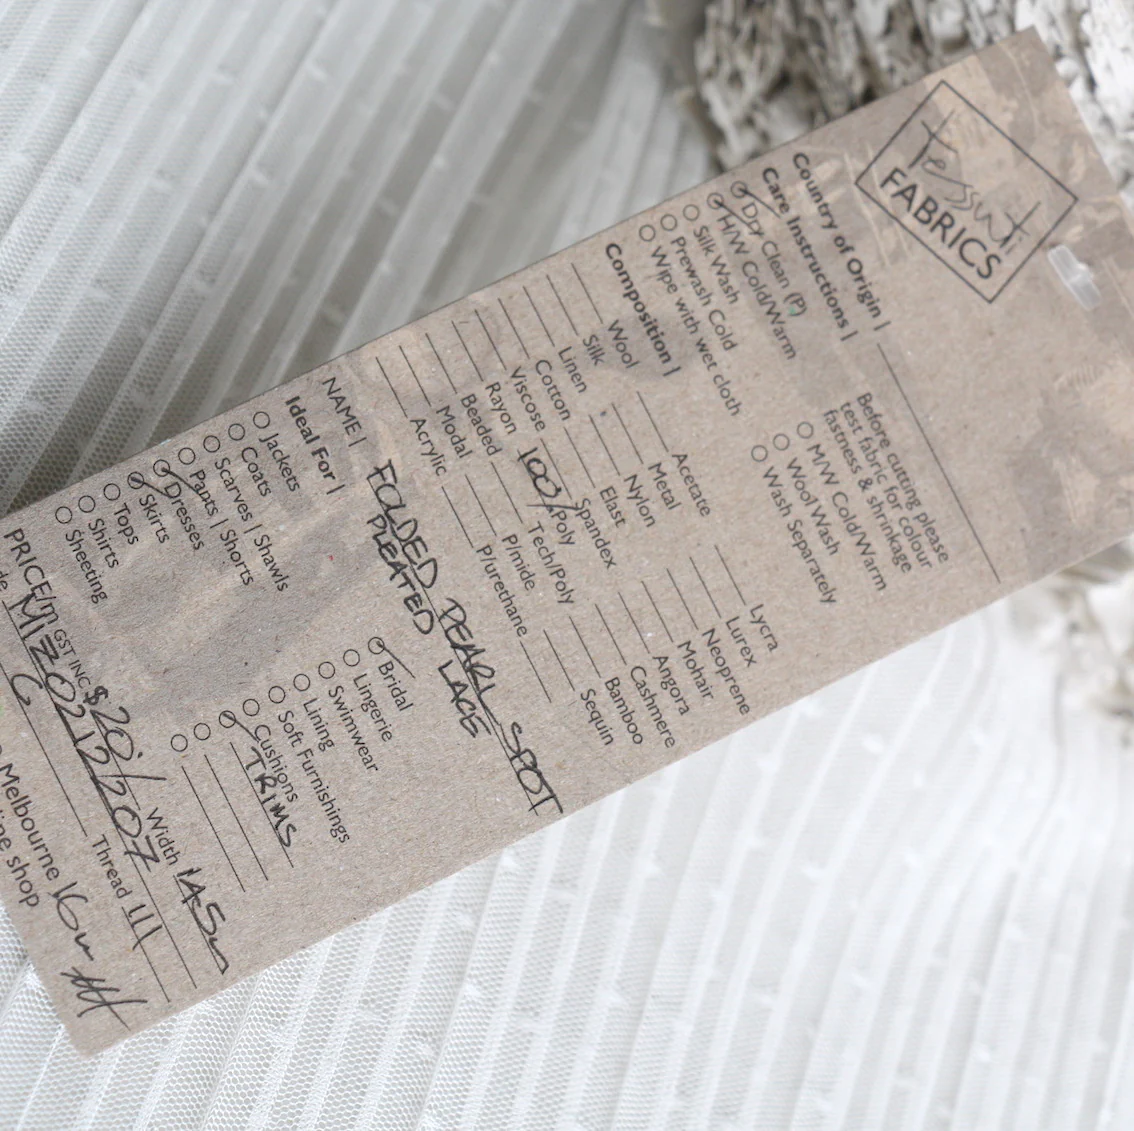 tessuti
FABRICS
Country of Origin |
Care Instructions |
Before cutting please
test fabric for colour
fastness & shrinkage
Dry Clean (P)
H/W Cold/Warm
M/W Cold/Warm
Silk Wash
Wool Wash
Prewash Cold
Wash Separately
Wipe with wet cloth
Composition |
Wool Acetate Lycra
Silk Metal Lurex
Linen Nylon Neoprene
Cotton Elast Mohair
Viscose Spandex Angora
Rayon 100% Poly Cashmere
Beaded Tech/Poly Bamboo
Modal P/mide Sequin
Acrylic P/urethane
NAME | FOLDED PEARL SPOT
PLEATED LACE
Ideal For |
Jackets Bridal
Coats Lingerie
Scarves | Shawls Swimwear
Pants | Shorts Lining
Dresses Soft Furnishings
Skirts Cushions
Tops TRIMS
Shirts
Sheeting
PRICE/m GST INC $20.- Width 145
MIZ0212207 Thread
Melbourne 16m
shop